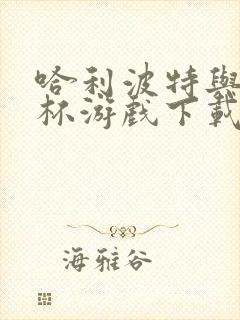 哈利波特與
杯游戲下載
海雅谷